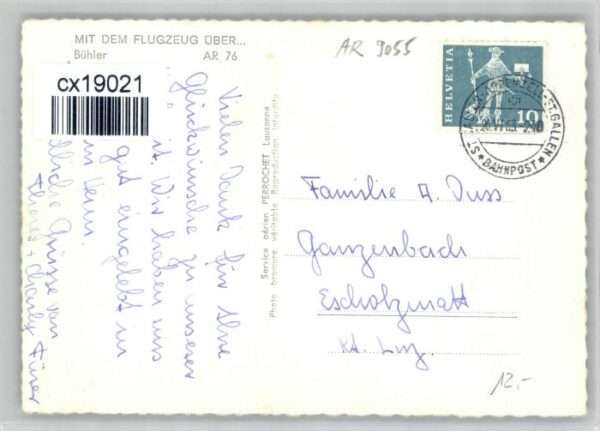 MIT DEM FLUGZEUG ÜBER...
Bühler AR 76
cx19021
AR 9055
HELVETIA
10
ST. GALLEN
BAHNPOST
Vielen Dank für Ihre
Glückwünsche zu unserer
Wir haben uns
gut eingelebt in
liche Grüsse von
Service aérien PERROCHET Lausanne
Photo bromure véritable Reproduction interdite
Familie A. Duss
Ganzenbach
Escholzmatt
Kt. Luz.
12.-